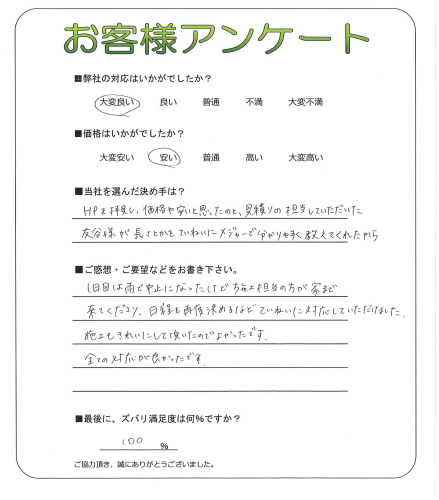 お客様アンケート
■弊社の対応はいかがでしたか？
大変良い 良い 普通 不満 大変不満
■価格はいかがでしたか？
大変安い 安い 普通 高い 大変高い
■当社を選んだ決め手は？
HPを拝見し、価格が安いと思ったのと、見積りの担当していただいた
灰谷様が長さとかをていねいにメジャーで分かりやすく教えてくれたから
■ご感想・ご要望などをお書き下さい。
1日目は雨で中止になったけど施工担当の方が家まで
来てくださり、日程を再度決めるなどていねいに対応していただけました。
施工もきれいにして頂いたのでよかったです。
全ての対応が良かったです。
■最後に、ズバリ満足度は何％ですか？
100 %
ご協力頂き、誠にありがとうございました。